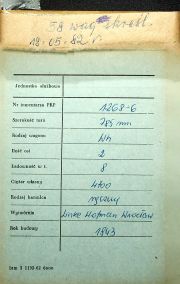 58 wag. skreśl.
18.05.82 r.
Jednostka służbowa
Nr inwentarza PKP 1268-6
Szerokość toru 785 mm
Rodzaj wagonu Wh
Ilość osi 2
Ładowność w t. 8
Ciężar własny 4400
Rodzaj hamulca ręczny
Wyposażenie Linke Hofman Wrocław
Rok budowy 1943